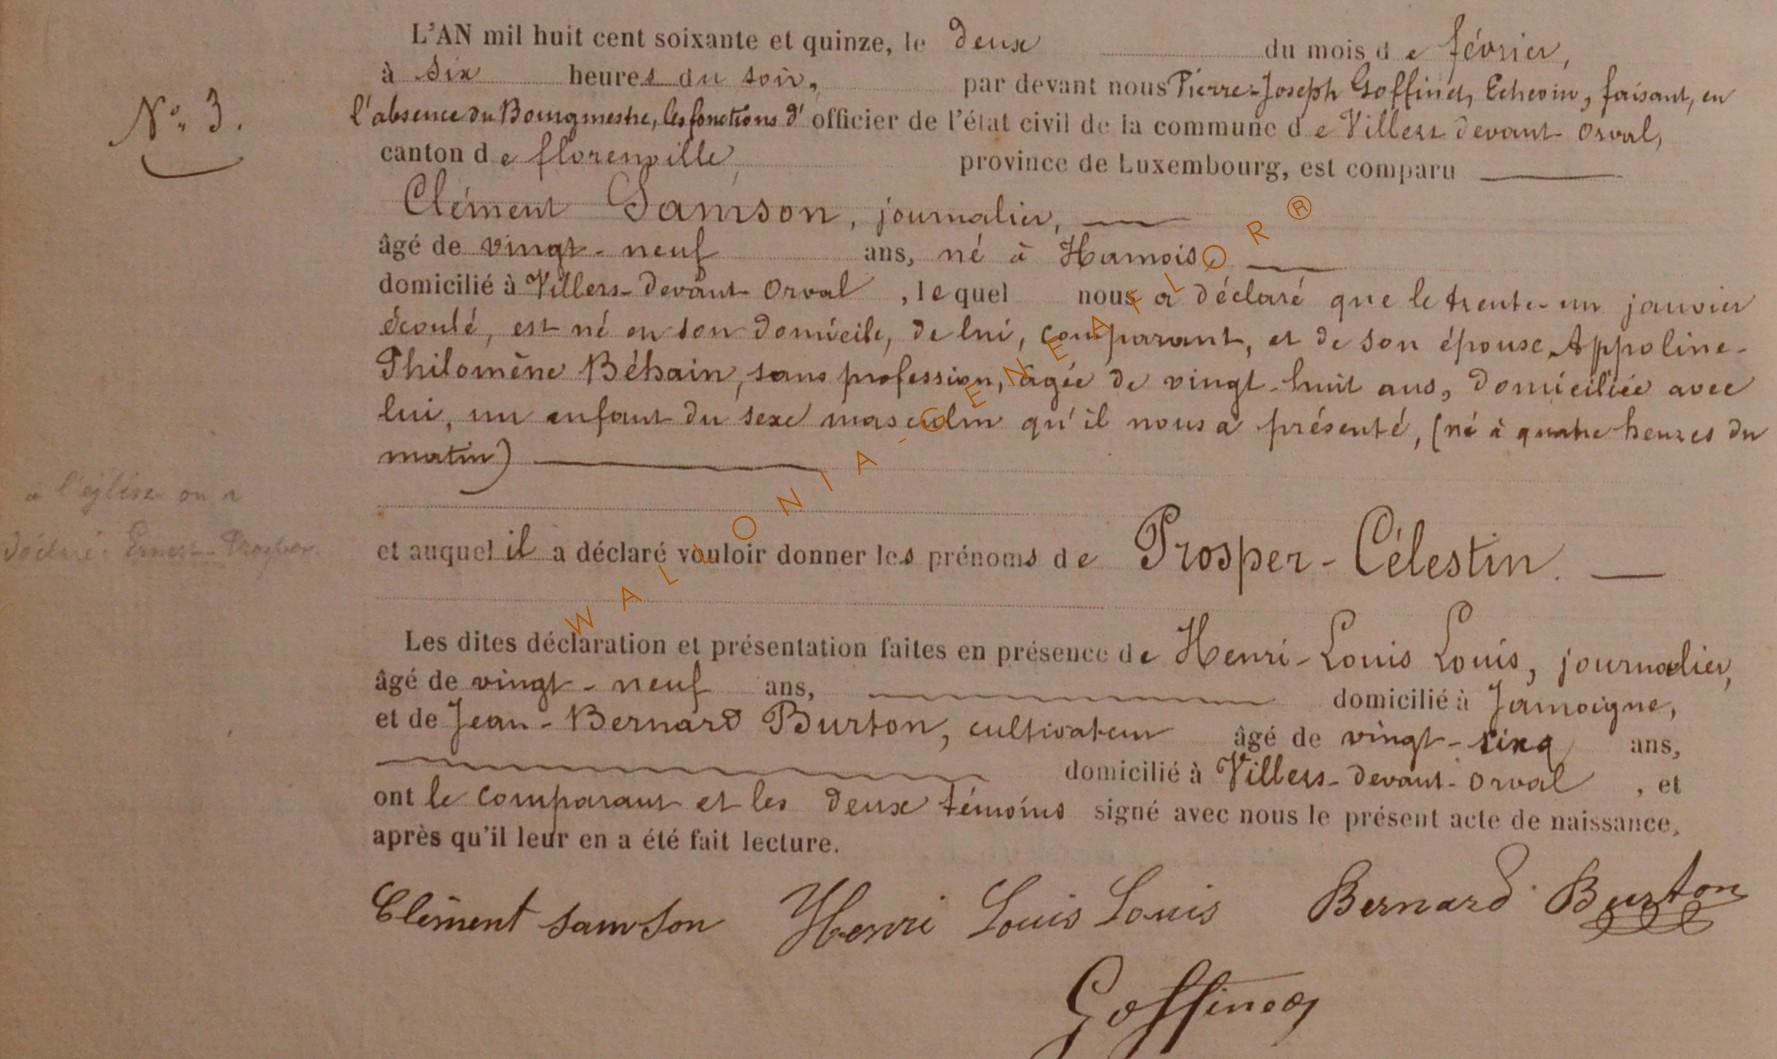 L'AN mil huit cent soixante et quinze, le deux du mois de février,
à six heures du soir, par devant nous Pierre-Joseph Goffinet, Echevin, faisant, en
N°. 3.
l'absence du Bourgmestre, les fonctions d'officier de l'état civil de la commune de Villers devant Orval,
canton de florenville, province de Luxembourg, est comparu
Clément Samson, journalier,
âgé de vingt-neuf ans, né à Hamois,
domicilié à Villers-devant-Orval, lequel nous a déclaré que le trente-un janvier
écoulé, est né en son domicile, de lui, comparant, et de son épouse Appoline-
Philomène Béhain, sans profession, âgée de vingt-huit ans, domiciliée avec
lui, un enfant du sexe masculin qu'il nous a présenté, (né à quatre heures du
matin)
à l'église on a
déclaré: Ernest-Prosper
et auquel il a déclaré vouloir donner les prénoms de Prosper-Célestin.
Les dites déclaration et présentation faites en présence de Henri-Louis Louis, journalier,
âgé de vingt-neuf ans, domicilié à Jamoigne,
et de Jean-Bernard Burton, cultivateur âgé de vingt-cinq ans,
domicilié à Villers-devant-Orval, et
ont le comparant et les deux témoins signé avec nous le présent acte de naissance,
après qu'il leur en a été fait lecture.
Clément Samson Henri Louis Louis Bernard Burton
Goffinet
WALLONIA-GENEAFLOR®